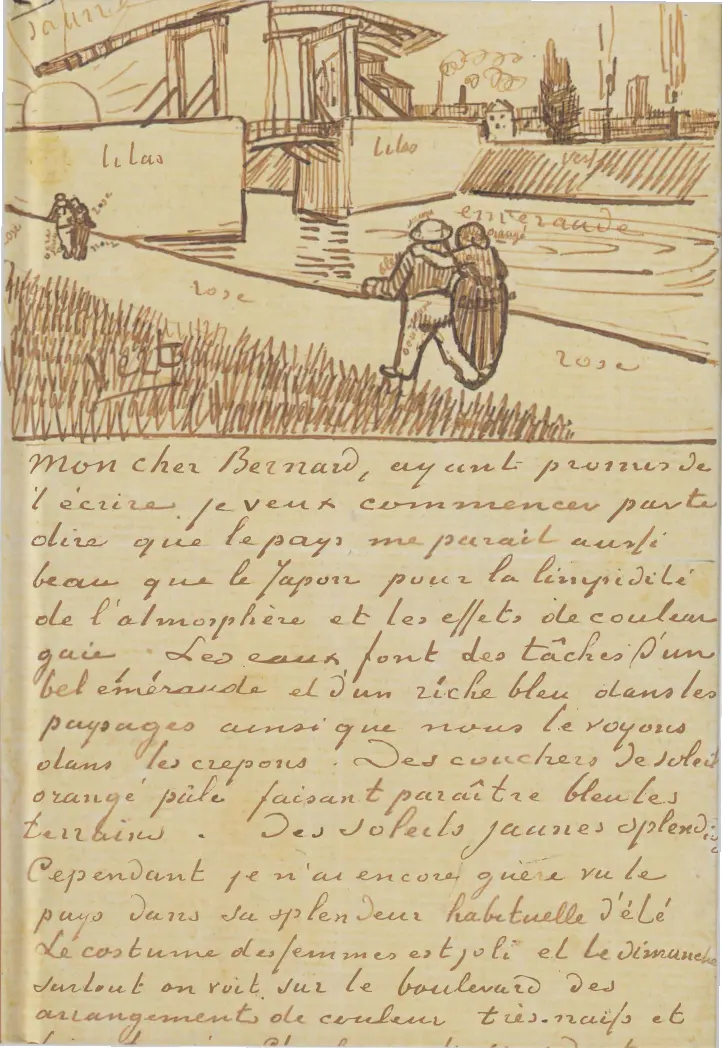 jaune
lilas
lilas
vert
rose
émeraude
orangé
rose
noir
rose
rose
vert
Mon cher Bernard, ayant promis de
t'écrire je veux commencer par te
dire que le pays me parait aussi
beau que le Japon pour la limpidité
de l'atmosphère et les effets de couleur
gaie. Les eaux font des tâches d'un
bel émeraude et d'un riche bleu dans les
paysages ainsi que nous le voyons
dans les crepons. Des couchers de soleil
orangé pâle faisant paraître bleu les
terrains. Des soleils jaunes splendides
Cependant je n'ai encore guère vu le
pays dans sa splendeur habituelle d'été
Le costume des femmes est joli et le dimanche
surtout on voit sur le boulevard des
arrangements de couleur très-naifs et